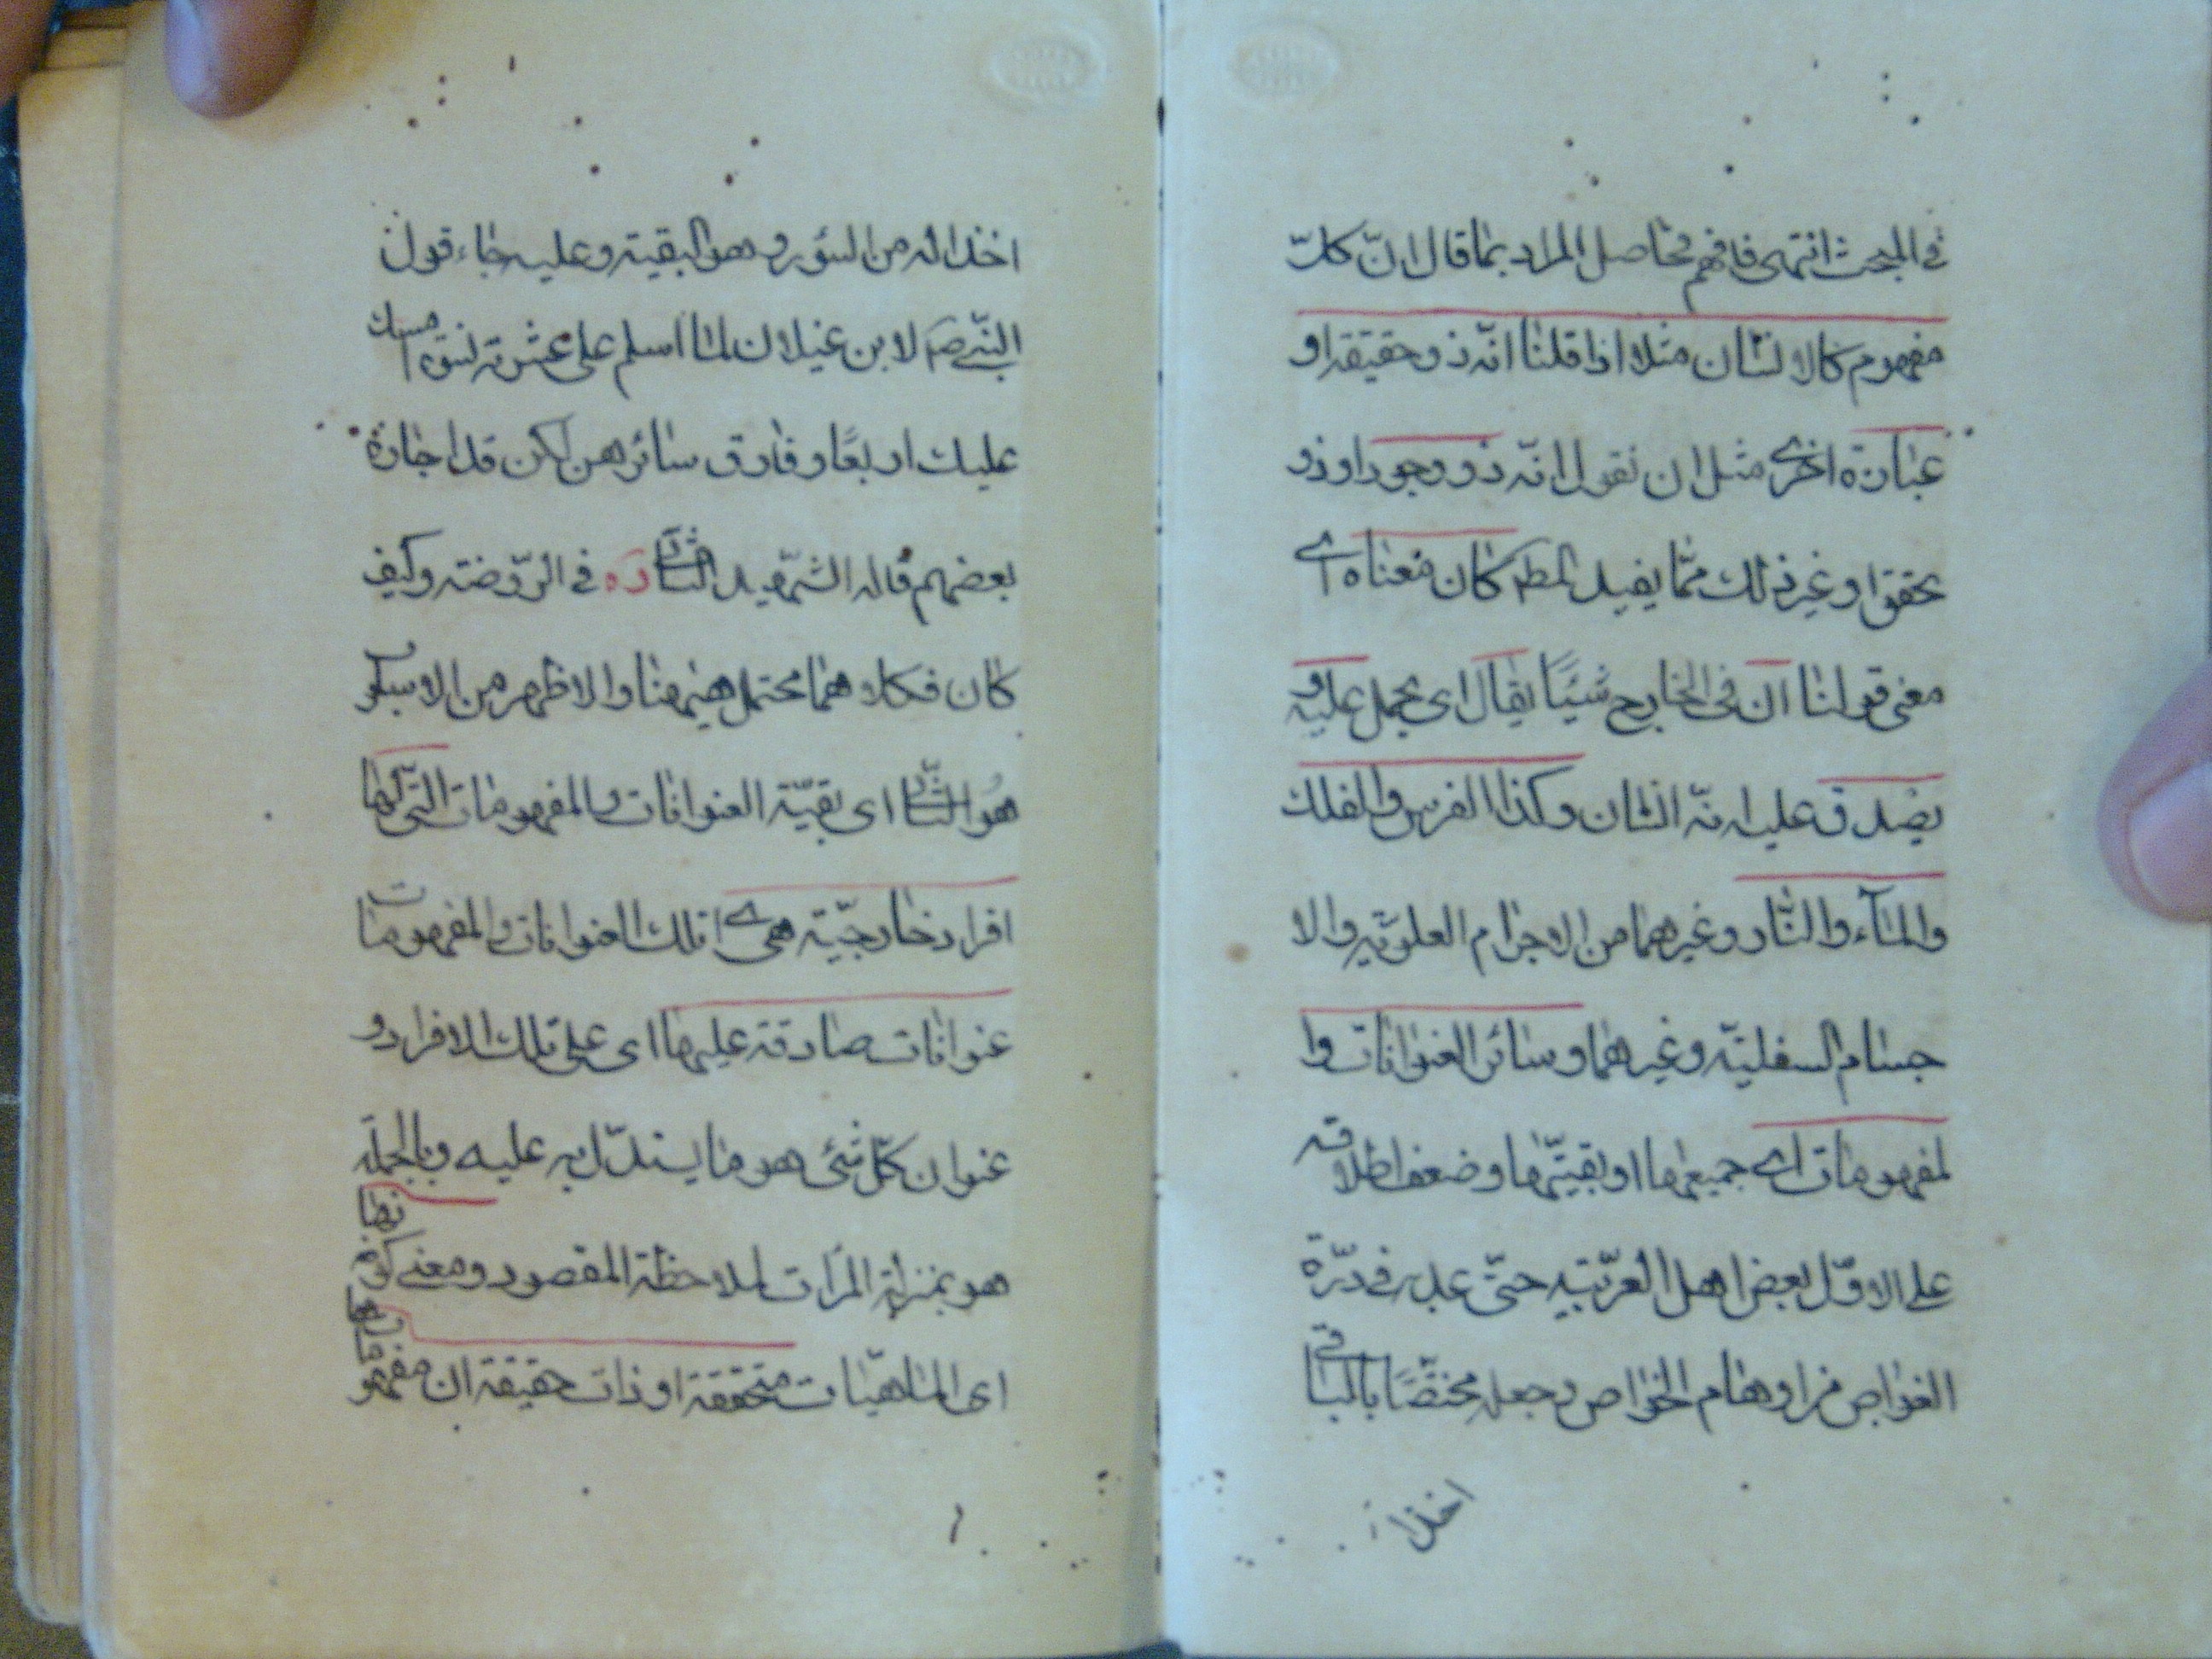 في المبحث انتهى فافهم فحاصل المراد بما قال ان كلّ
مفهوم كالانسان مثلا اذا قلنا انّه ذو حقيقة او
عبارة اخرى مثل ان نقول انّه ذو وجود او ذو
تحقق او غير ذلك ممّا يفيد المط كان معناه اى
معنى قولنا انّ فى الخارج شيئًا يقال اى يحمل عليه و
يصدق عليه انّه انسان وكذا الفرس والفلك
والماء والنّار وغيرهما من الاجرام العلويّه والا
جسام السفليّه وغيرهما وساير العنوانات وا
لمفهومات اى جميعها او بقيّتها وضعف اطلاقه
على الاوّل بعض اهل العربيّه حتّى عدّه فى درّة
الغواص من اوهام الخواص وجعله مختصًّا بالباقى
اخذا
اخذا له من السؤر وهو البقية وعليه جاء قول
النّبي ص لابن غيلان لمّا اسلم على عشرة نسوة امسك
عليك اربعًا وفارق سائرهن لكن قد اجازه
بعضهم قاله الشّهيد الثّانى ره فى الرّوضة وكيف
كان فكلاهما محتمل هيهنا والاظهر من الاسبكو
هو الثّانى اى بقيّة العنوانات والمفهومات التى لها
افراد خارجيّة هى اى تلك العنوانات والمفهومات
عنوانات صادقة عليها اى على تلك الافراد و
عنوان كلّ شئ هو ما يستدلّ به عليه وبالجملة
هو بمنزلة المرآت لملاحظة المقصود ومعنى كونها
اى الماهيّات متحققة او ذات حقيقة ان مفهوماتها